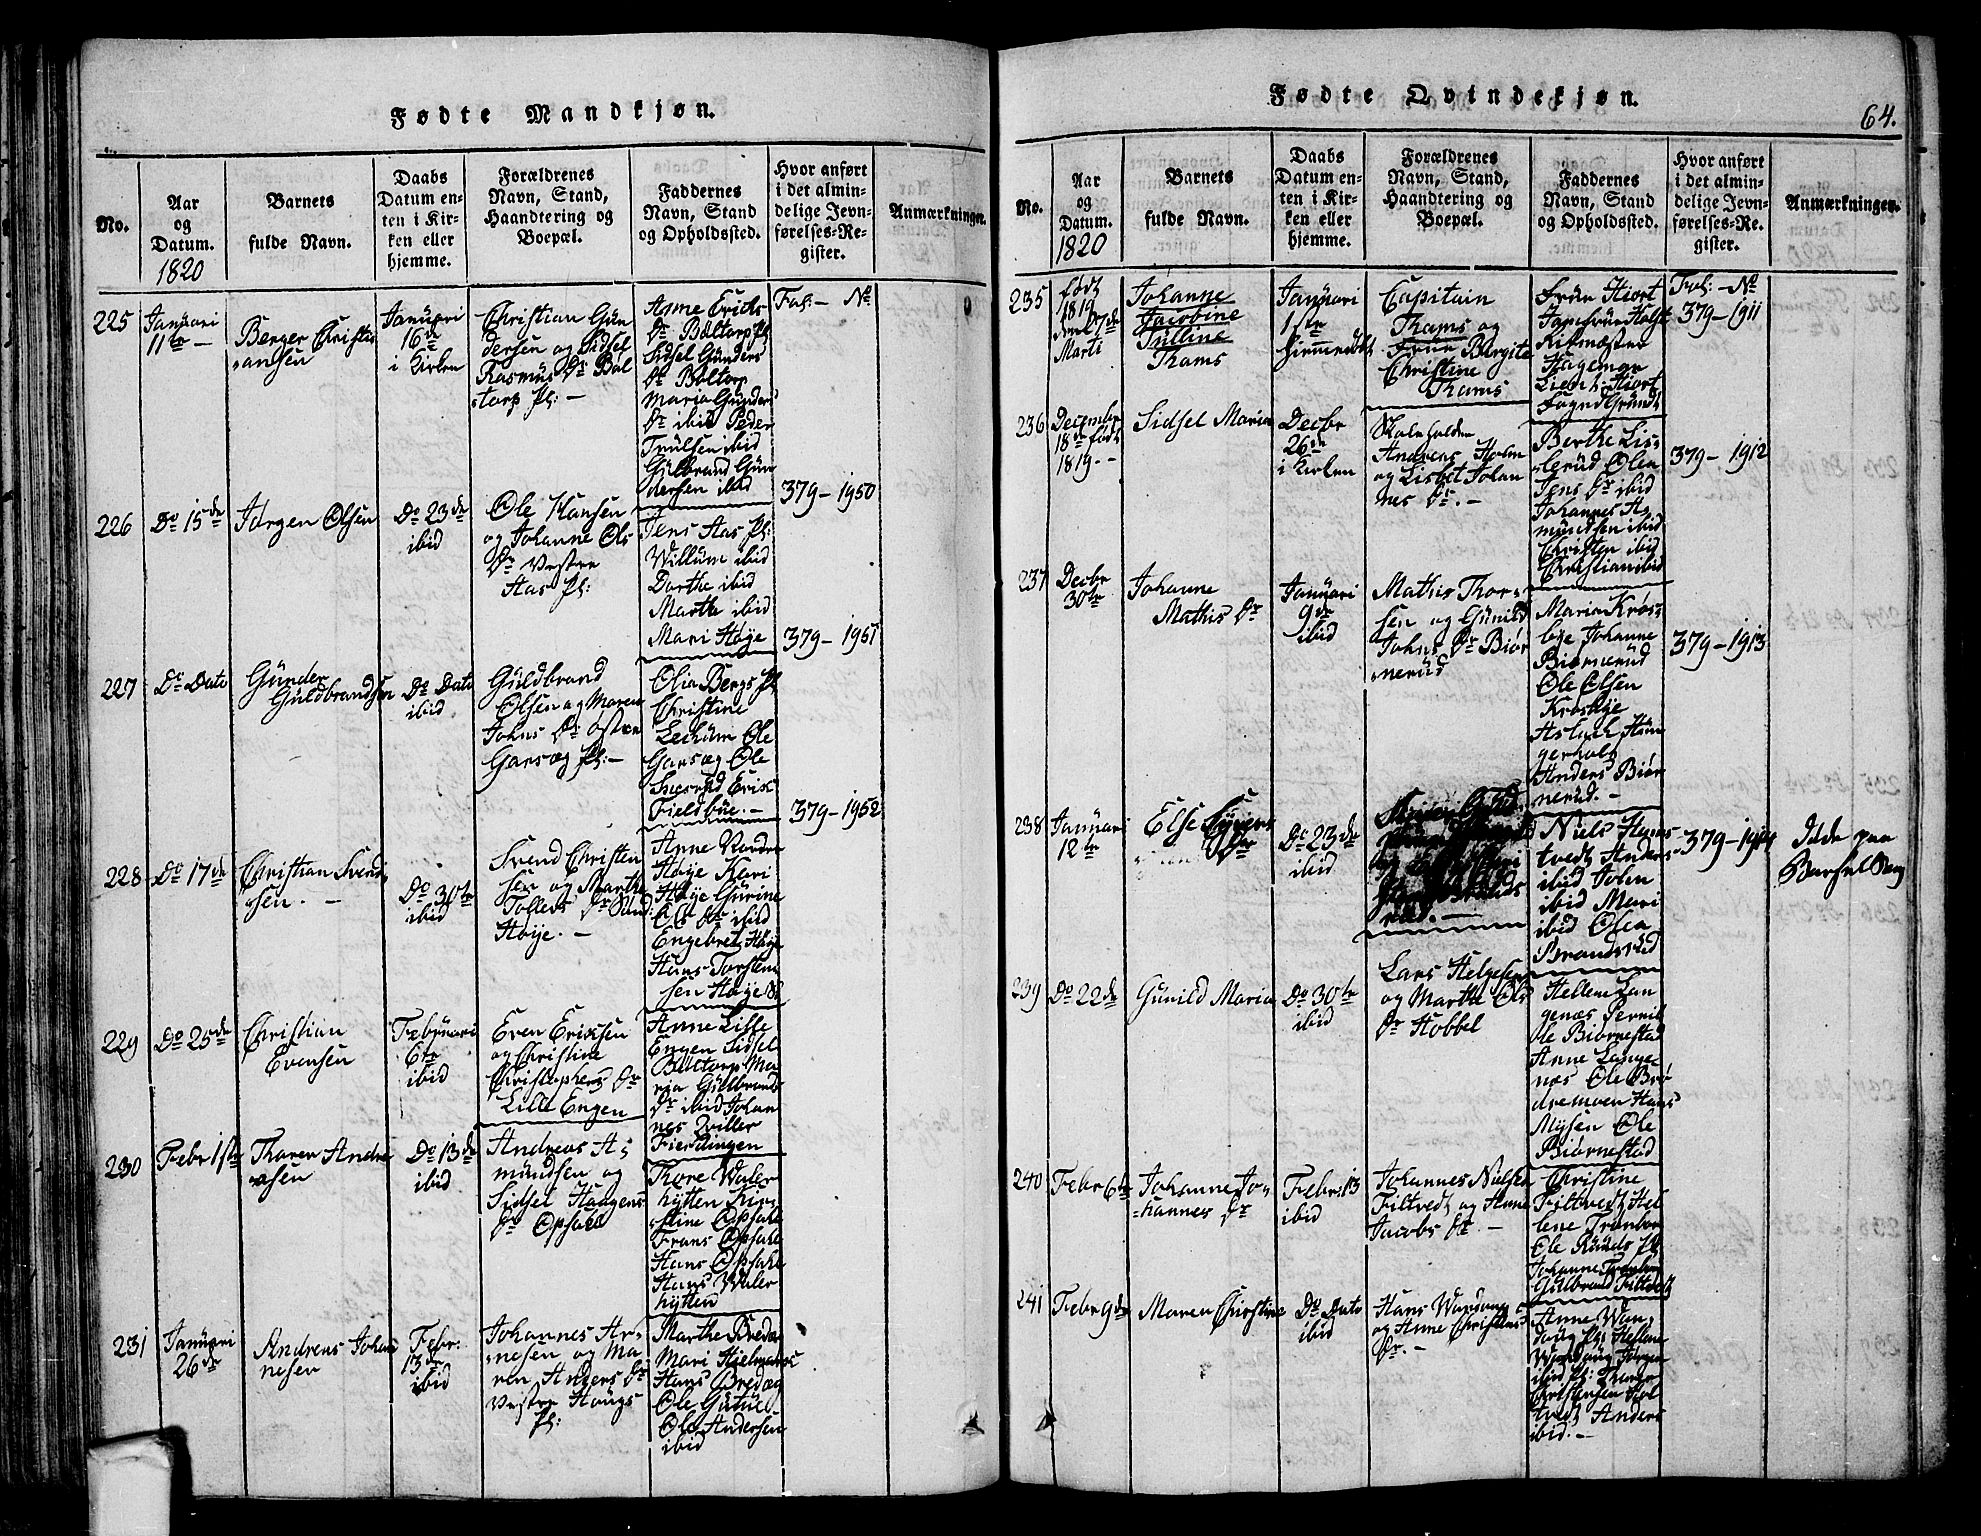 Fødte Mandkjøn.
No.
Aar
og
Datum.
1820
Barnets
fulde Navn.
Daabs
Datum en-
ten i Kir-
ken eller
hjemme.
Forældrenes
Navn, Stand,
Haandtering og
Boepæl.
Faddernes
Navn, Stand
og Opholdssted.
Hvor anført
i det almin-
delige Jevn-
førelses-Re-
gister.
Anmærkninger.
225
Januari
11te
Berger Christi
ansen
Januari
16de
i Kirken
Christian Gun
dersen og Sidsel
Rasmus Dr Böl
torp Pl: -
Anne Erichs
Dr Böltorp Pl
Sidsel Gunders
Dr Böltorp
Maria Gunders
Dr ibid Peder
Truulsen ibid
Gulbrand Gun
dersen ibid
Fol: - No
379 - 1950
226
Do 15de
Jörgen Olsen
Do 23de
ibid
Ole Hansen
og Johanne Ols
Dr Vestre
Aas Pl:
Jens Aas Pl:
Willum ibid
Dorthe ibid
Marthe ibid
Mari Høye
379 - 1951
227
Do Dato
Günder
Guldbrandsen
Do Dato
ibid
Guldbrand
Olsen og Maren
Johns Dr østre
Garsæg Pl: -
Olia Bergs Pl
Christine
Lechum Ole
Garsæg Ole
Erik
Fieldbue. -
379 - 1952
228
Do 17de
Christian Svend
sen. -
Do 30te
ibid
Svend Christen
sen og Marthe
Tollefs Dr
Høye. -
Anne
Høye Kari
Høye Gurine
Ols Dr ibid
Engebret Høye
Hans Torsten
sen Høye
229
Do 25de
Christian
Evensen
Februari
6te
ibid
Even Eriksen
og Christine
Christophers Dr
Lille Engen
Anne Lille
Engen Sidsel
Böltorp Ma
ria Gulbrands
Dr ibid Johan
nes Qviller
Fierdingen
230
Febr 1ste
Thorer Andre
asen
Do 13de
ibid
Andreas As
mundsen og
Sidsel Haagens
Dr Opsahl
Thore Waler
hytten Kir
stine Opsahl
Frans Opsahl
Hans Opsahl
Hans Waler
hytten
231
Januari
26de
Andreas Johan
nesen
Febr:
13de
ibid
Johannes Ar
nesen og Ma
ren Anders Dr
Vestre Haugs
Pl:
Marthe Bredæg
Mari Hielmark
Hans Bredæg
Ole Gutue
Ole Andersen
ibid
Fødte Qvindekjøn.
64.
No.
Aar
og
Datum.
1820
Barnets
fulde Navn.
Daabs
Datum en-
ten i Kir-
ken eller
hjemme.
Forældrenes
Navn, Stand,
Haandtering og
Boepæl.
Faddernes
Navn, Stand
og Opholdssted.
Hvor anført
i det almin-
delige Jevn-
førelses-Re-
gister.
Anmærkninger.
235
født
1819
den 7de
Marti
Johanne
Jacobine
Tulline
Thams
Januari
1ste
hiemmedöbt
Capitain
Thams og
Frue Birgite
Christine
Thams
Frue Hiort
Jomfrue Holst
Ritmæster
Hageman
Lieut: Hiort
Foged Grundt
Fol: - No
379 - 1911
236
December
18de født
1819. -
Sidsel Maria
Decbr
26de
i Kirken
Skoleholder
Andreas Holm
og Lisbet Johan
nes Dr. -
Berthe Lis
lerud Olea
Jens Dr ibid
Johannes As
mundsen ibid
Christen ibid
Christian ibid
379 - 1912
237
Decbr
30te
Johanne
Mathis Dr
Januari
9de
ibid
Mathis Thor
sen og Gunild
Johns Dr Biør
nerud
Maria Kros
bye Johanne
Biørnerud
Ole Olsen
Krosbye
Aslach Hun
gerholt
Anders Biør
nerud. -
379 - 1913
238
Januari
12te
Else
Dr
Do 23de
ibid
Niels Hans
tvedt Anders
ibid John
ibid Mari
ibid Olea
Brandsrud
379 - 1914
Døde paa
Barsel Seng
239
Do 22de
Gunild Maria
Do 30te
ibid
Lars Helgesen
og Marthe Ols
Dr Hobbel
Hellene Lan
genæs Pernil
le Biørnestad
Anne Lange
næs Ole Brø
dremoen Hans
Mysen Ole
Biørnestad
240
Febr 6te
Johanne Jo
hannes Dr
Febr: 13
ibid
Johannes Nielsen
Filtvedt og Anne
Jacobs Dr. -
Christine
Filtvedt Hel
lene Tronbøe
Ole Ruuds Pl
Johanne
Gulbrand Filtvedt
241
Febr 9de
Maren Christine
Do Dato
ibid
Hans Wandoug
og Anne Christens
Dr. -
Anne Wan
doug Pl: Hellene
Wandoug Jørgen
ibid Pl: Thorer
Christensen
tvedt Anders
ibid. -